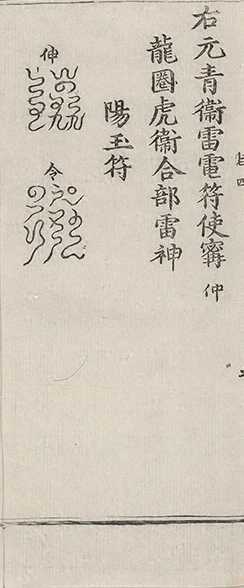 右元青衞雷電符使寗仲
龍圈虎衞合部雷神
陽玉符
令
伸